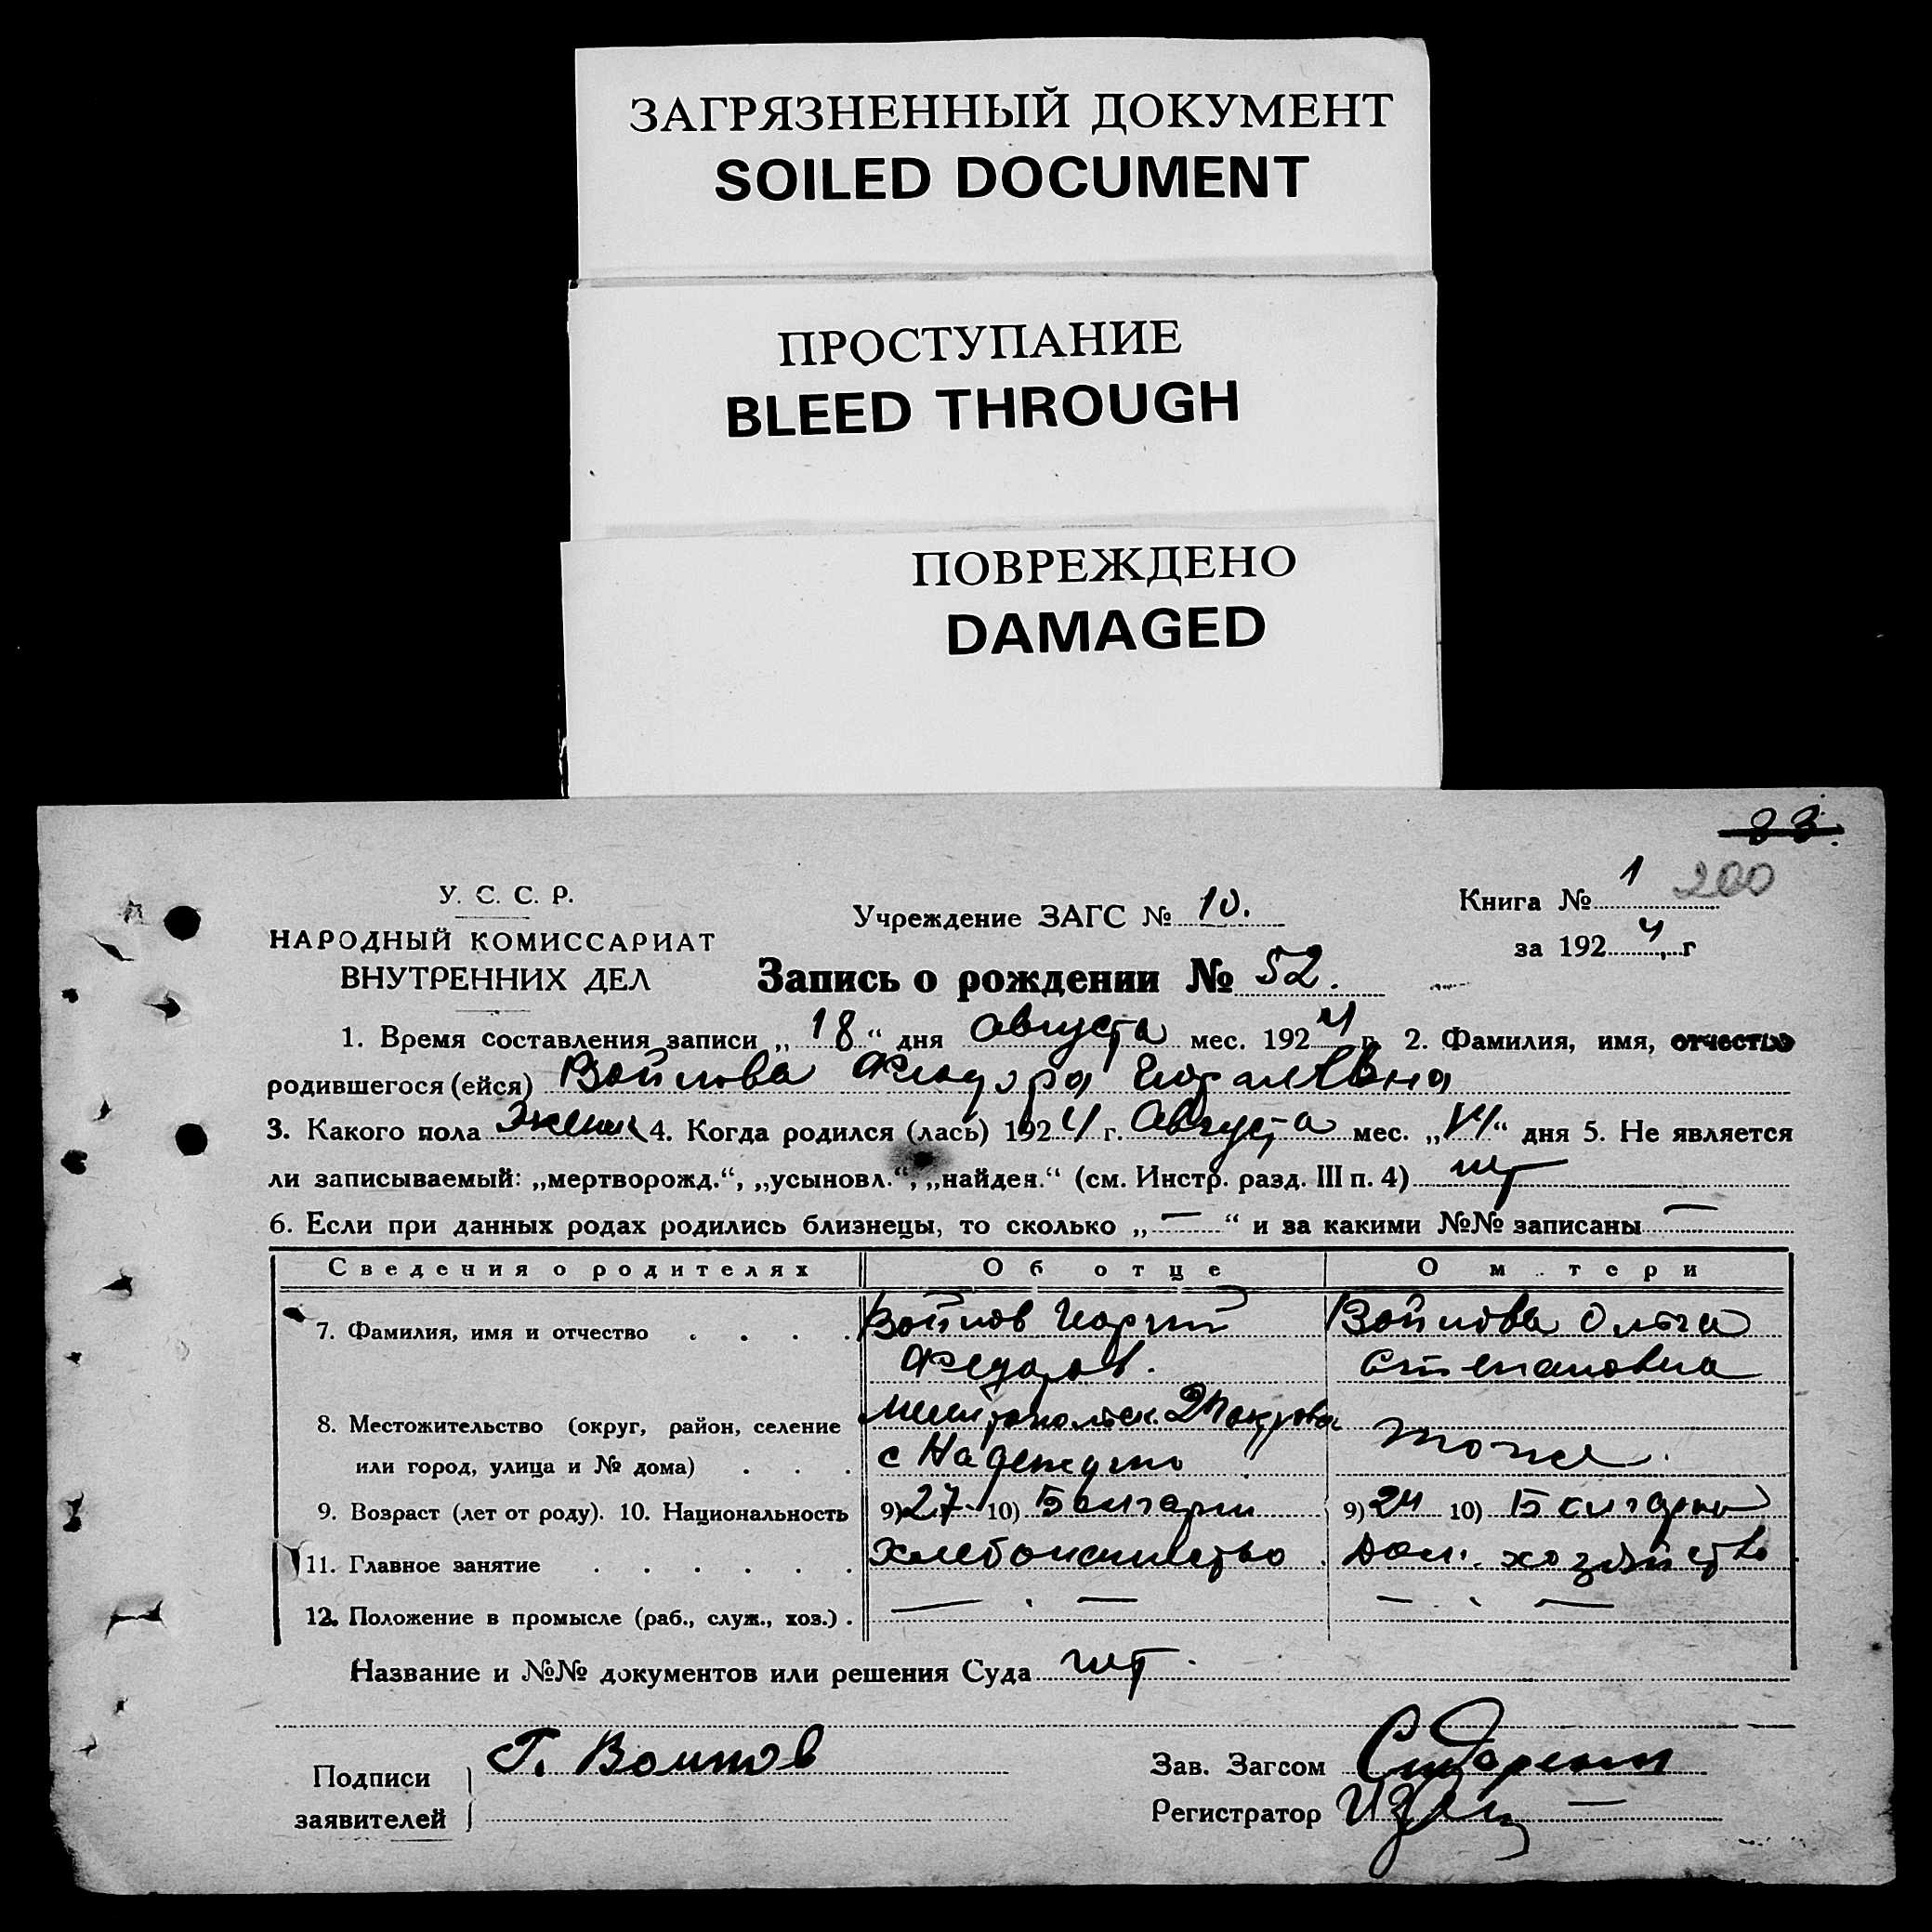 ЗАГРЯЗНЕННЫЙ ДОКУМЕНТ
SOILED DOCUMENT
ПРОСТУПАНИЕ
BLEED THROUGH
ПОВРЕЖДЕНО
DAMAGED
33.
У. С. С. Р.
НАРОДНЫЙ КОМИССАРИАТ
ВНУТРЕННИХ ДЕЛ
Учреждение ЗАГС № 10.
Книга № 1 200
за 1924 г
Запись о рождении № 52.
1. Время составления записи „18“ дня Августа мес. 1924 г. 2. Фамилия, имя, отчество
родившегося (ейся) Войнова
3. Какого пола женск 4. Когда родился (лась) 1924 г. Августа мес. „14“ дня 5. Не является
ли записываемый: „мертворожд.“, „усыновл.“, „найден.“ (см. Инстр. разд. III п. 4) нет
6. Если при данных родах родились близнецы, то сколько „—“ и за какими №№ записаны —
Сведения о родителях Об отце О м тери
7. Фамилия, имя и отчество . . . . Войнов Георгий Войнова Ольга
Федоров. Степановна
8. Местожительство (округ, район, селение Покровск
или город, улица и № дома) . . . с Надеждино тоже.
9. Возраст (лет от роду). 10. Национальность 9) 27 10) Болгарин 9) 24 10) Болгарка
11. Главное занятие . . . . . . Хлебопашество. Дом. хозяйство
12. Положение в промысле (раб., служ., хоз.) . — . — — . —
Название и №№ документов или решения Суда нет.
Подписи Г. Воинов
заявителей
Зав. Загсом
Регистратор